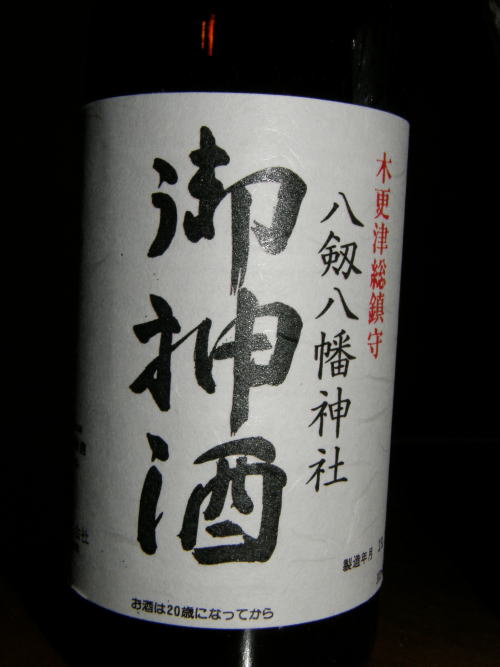 木更津総鎮守
八剱八幡神社
御神酒
製造年月
お酒は20歳になってから